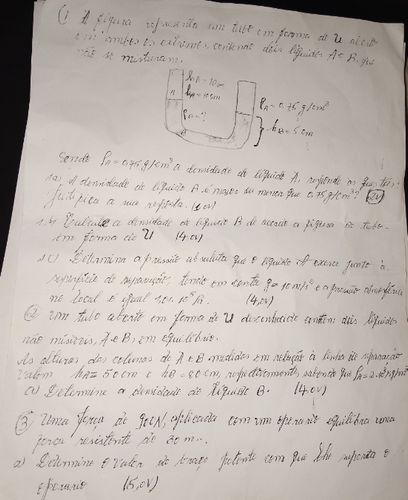 ① A figura representa um tubo em forma de U aberto
em ambos os extremos contendo dois líquidos A e B, que
não se misturam.
hA = 10cm
ρA = 0,75 g/cm³
hB = 5cm
Sendo ρA = 0,75 g/cm³ a densidade do líquido A, responde as questões
1.a) A densidade do líquido B é maior ou menor que 0,75 g/cm³? (2V)
Justifica a sua resposta.
1.b) Calcule a densidade do líquido B de acordo a figura do tubo
em forma de U (4.0V)
1.c) Determina a pressão absoluta que o líquido exerce junto à
superfície de separação, tendo em conta g = 10 m/s² e a pressão atmosférica
no local é igual 1.0 x 10⁵ Pa. (4,0V)
② Um tubo aberto em forma de U contém dois líquidos
não misíveis, A e B, em equilíbrio.
As alturas das colunas de A e B medidas em relação à linha de separação
valem hA = 50 cm e hB = 80 cm, respectivamente, sabendo que
a) Determine a densidade do líquido B. (4.0V)
③ Uma força de 900N, aplicada com um operario equilibra uma
força resistente de 30 m.
a) Determine o valor do braço potente com que lhe suporta o
operario (5,0V)